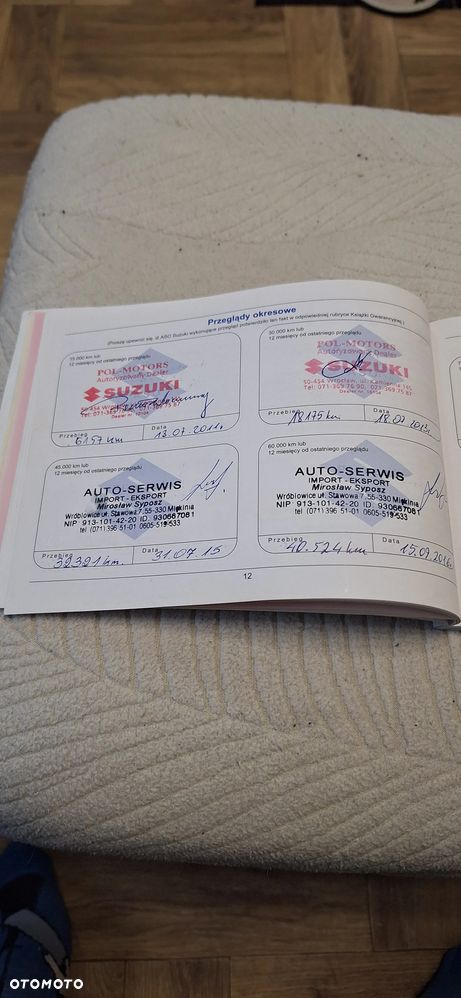 Przeglądy okresowe
(Proszę upewnić się, iż ABO Suzuki wykonujące przegląd potwierdziło ten fakt w odpowiedniej rubryce Książki Gwarancyjnej.)
15.000 km lub
12 miesięcy od ostatniego przeglądu
POL-MOTORS
Autoryzowany Dealer
SUZUKI
50-454 Wrocław
Tel: 071-369
Dealer nr
Przebieg
6157 km
Data
13.07.2011r
30.000 km lub
12 miesięcy od ostatniego przeglądu
POL-MOTORS
Autoryzowany Dealer
SUZUKI
50-454 Wrocław, ul.
Tel: 071-369 76 90, 071-369 75 87
Dealer nr
Przebieg
18175 km
Data
18.07.2013r
45.000 km lub
12 miesięcy od ostatniego przeglądu
AUTO-SERWIS
IMPORT - EKSPORT
Mirosław Syposz
Wróblowice ul. Stawowa 7, 55-330 Miękinia
NIP 913-101-42-20 ID: 930667081
tel (071) 396 51-01 0605-519-533
Przebieg
32321 km.
Data
31.07.15
60.000 km lub
12 miesięcy od ostatniego przeglądu
AUTO-SERWIS
IMPORT - EKSPORT
Mirosław Syposz
Wróblowice ul. Stawowa 7, 55-330 Miękinia
NIP 913-101-42-20 ID: 930667081
tel (071) 396 51-01 0605-519-533
Przebieg
40.524 km
Data
15.09.2016r
12
OTOMOTO